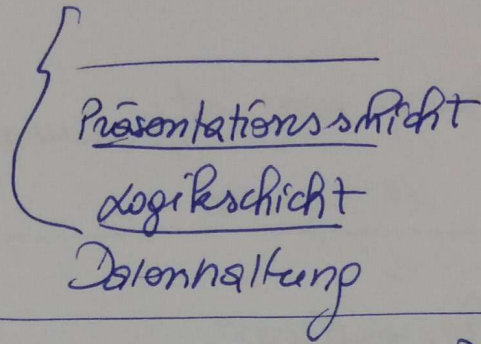 Präsentationsschicht
Logikschicht
Datenhaltung